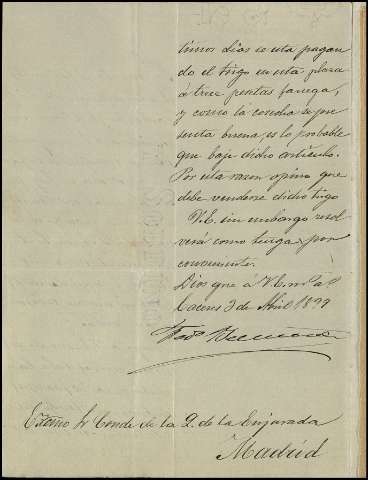 timos dias se esta pagan
do el trigo en esta plaza
á trece pesetas fanega,
y como la cosecha se pre
senta buena, es lo probable
que baje dicho artículo.
Por esta razon opino que
debe venderse dicho trigo
V.E. sin embargo resol
verá como tenga por
conveniente.
Dios gue á V.E. m.s a.s
Caceres 3 de Abril 1899
Excmo Sr Conde de la Q. de la Enjarada
Madrid